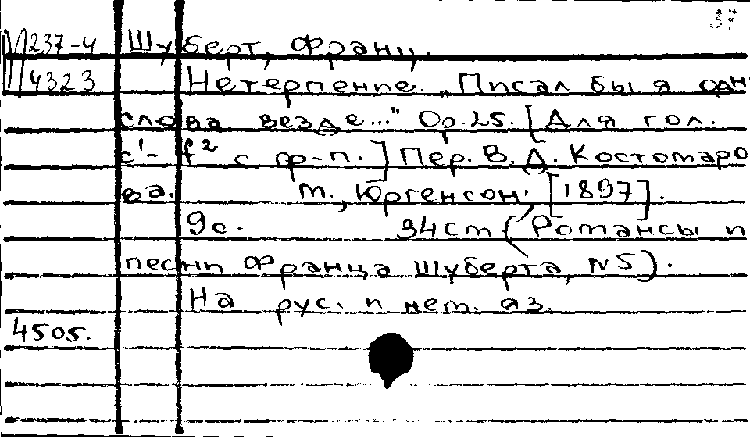 37
М 237-4 Шуберт, Франц.
4323 Нетерпение. "Писал бы я одн
слова везде..." Ор.25. [Для гол.
c¹-f² с ф-п.] Пер. В.Д. Костомаро
ва. М., Юргенсон, [1897].
9с. 34cm (Романсы и
песни Франца Шуберта, N5).
На рус. и нем. яз.
4505.